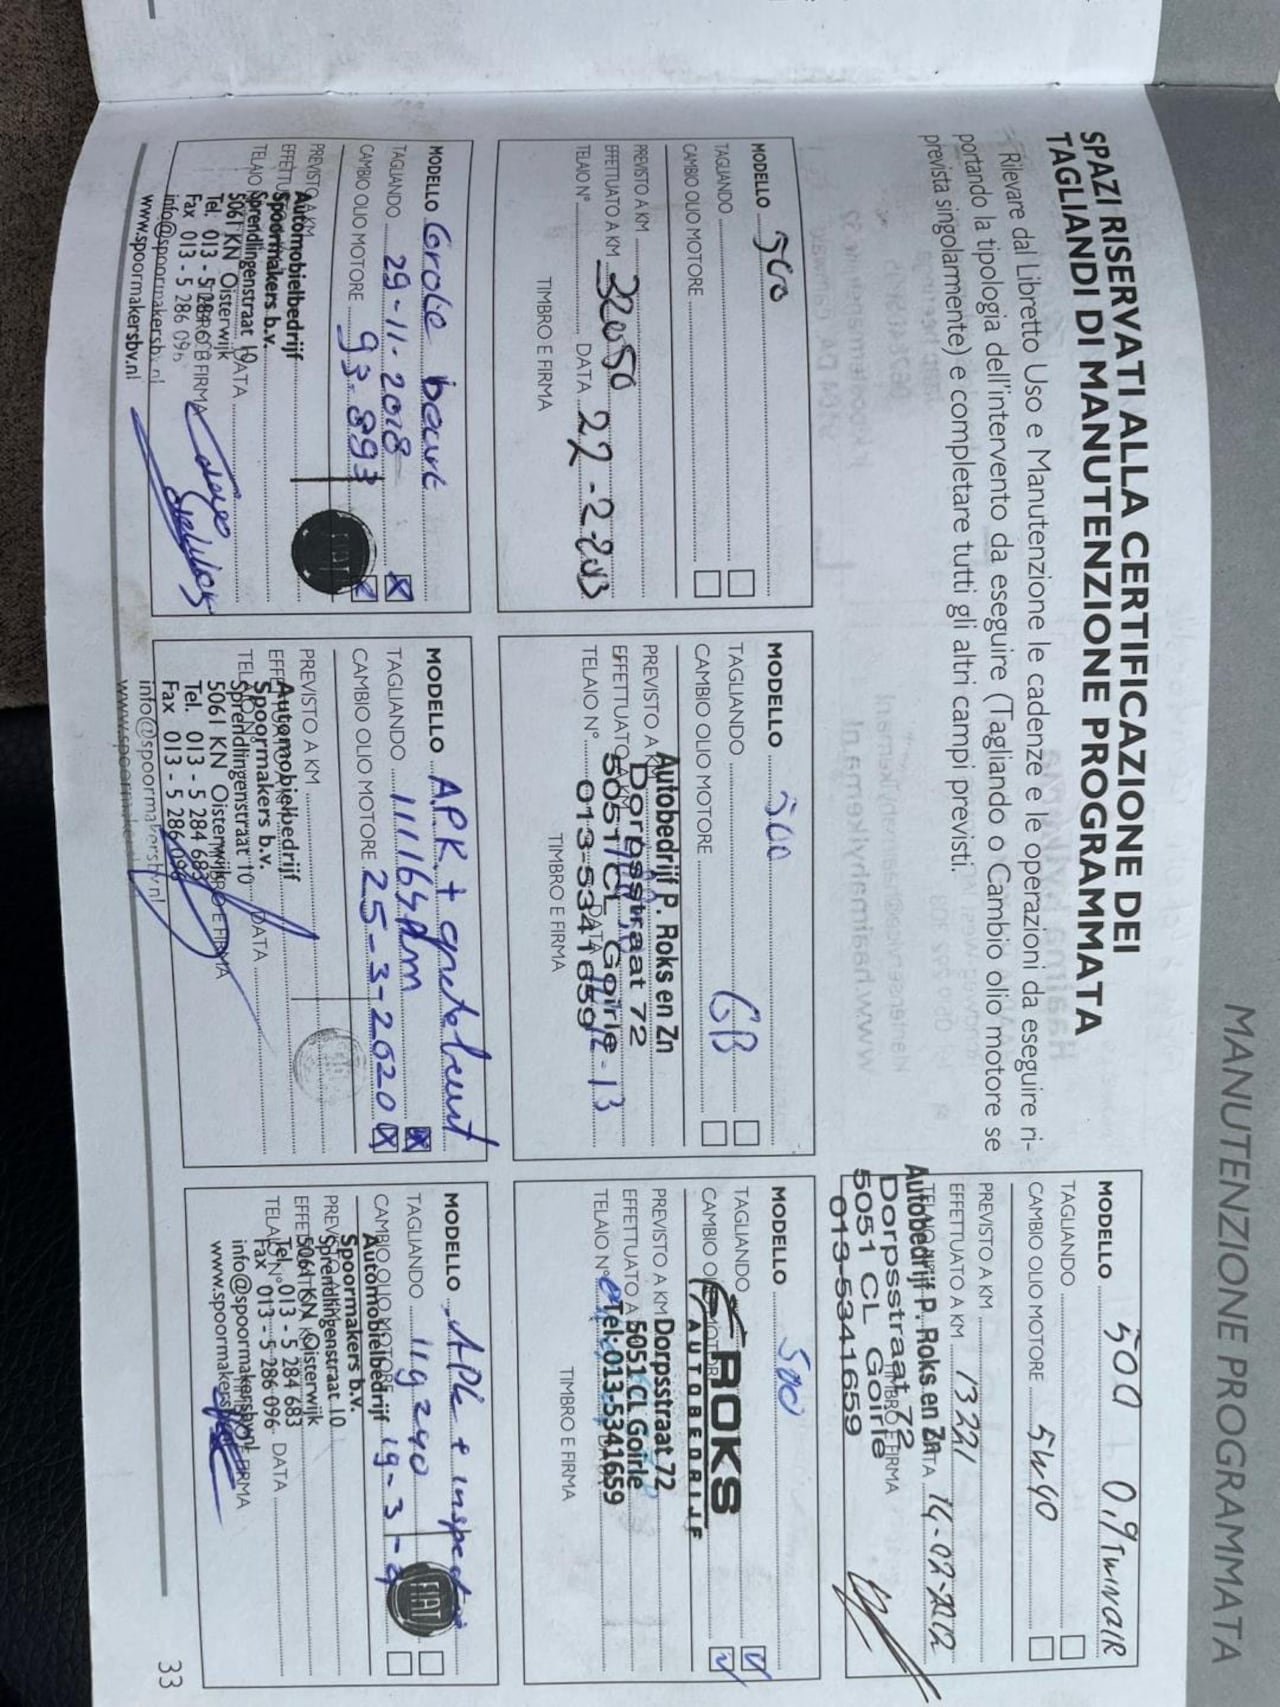 MANUTENZIONE PROGRAMMATA
SPAZI RISERVATI ALLA CERTIFICAZIONE DEI
TAGLIANDI DI MANUTENZIONE PROGRAMMATA
Rilevare dal Libretto Uso e Manutenzione le cadenze e le operazioni da eseguire ri-
portando la tipologia dell'intervento da eseguire (Tagliando o Cambio olio motore se
prevista singolarmente) e completare tutti gli altri campi previsti.
MODELLO 500 0.9 TWINAIR
TAGLIANDO
CAMBIO OLIO MOTORE 5W40
PREVISTO A KM
EFFETTUATO A KM 13221
TELAIO DATA 14-02-2012
TIMBRO E FIRMA
Autobedrijf P. Roks en Zn
Dorpsstraat 72
5051 CL Goirle
013-5341659
MODELLO 500
TAGLIANDO
CAMBIO OLIO MOTORE
PREVISTO A KM
EFFETTUATO A KM 32050
TELAIO N° DATA 22-2-2013
TIMBRO E FIRMA
MODELLO 500
TAGLIANDO GB
CAMBIO OLIO MOTORE
PREVISTO A KM
EFFETTUATO A KM
TELAIO N° DATA -13
TIMBRO E FIRMA
Autobedrijf P. Roks en Zn
Dorpsstraat 72
5051 CL Goirle
013-5341659
MODELLO 500
TAGLIANDO
CAMBIO OLIO MOTORE
PREVISTO A KM
EFFETTUATO A
TELAIO N° DATA
TIMBRO E FIRMA
ROKS
AUTOBEDRIJF
Dorpsstraat 72
5051 CL Goirle
Tel: 013-5341659
MODELLO Grote beurt
TAGLIANDO 29-11-2018
CAMBIO OLIO MOTORE 93.893
PREVISTO A KM
TELAIO DATA
FIRMA
Automobielbedrijf
Spoormakers b.v.
Sprendlingenstraat 10
5061 KN Oisterwijk
Tel. 013 - 5 284 683
Fax 013 - 5 286 096
info@spoormakersbv.nl
www.spoormakersbv.nl
FIAT
MODELLO APK + grote beurt
TAGLIANDO 111165km
CAMBIO OLIO MOTORE 25-3-2020
PREVISTO A KM
DATA
E FIRMA
Automobielbedrijf
Spoormakers b.v.
Sprendlingenstraat 10
5061 KN Oisterwijk
Tel. 013 - 5 284 683
Fax 013 - 5 286 096
info@spoormakersbv.nl
MODELLO APK + inspectie
TAGLIANDO 119240
CAMBIO OLIO MOTORE 19-3-
DATA
FIRMA
Automobielbedrijf
Spoormakers b.v.
Sprendlingenstraat 10
5061 KN Oisterwijk
Tel. 013 - 5 284 683
Fax 013 - 5 286 096
info@spoormakersbv.nl
www.spoormakersbv.nl
FIAT
33